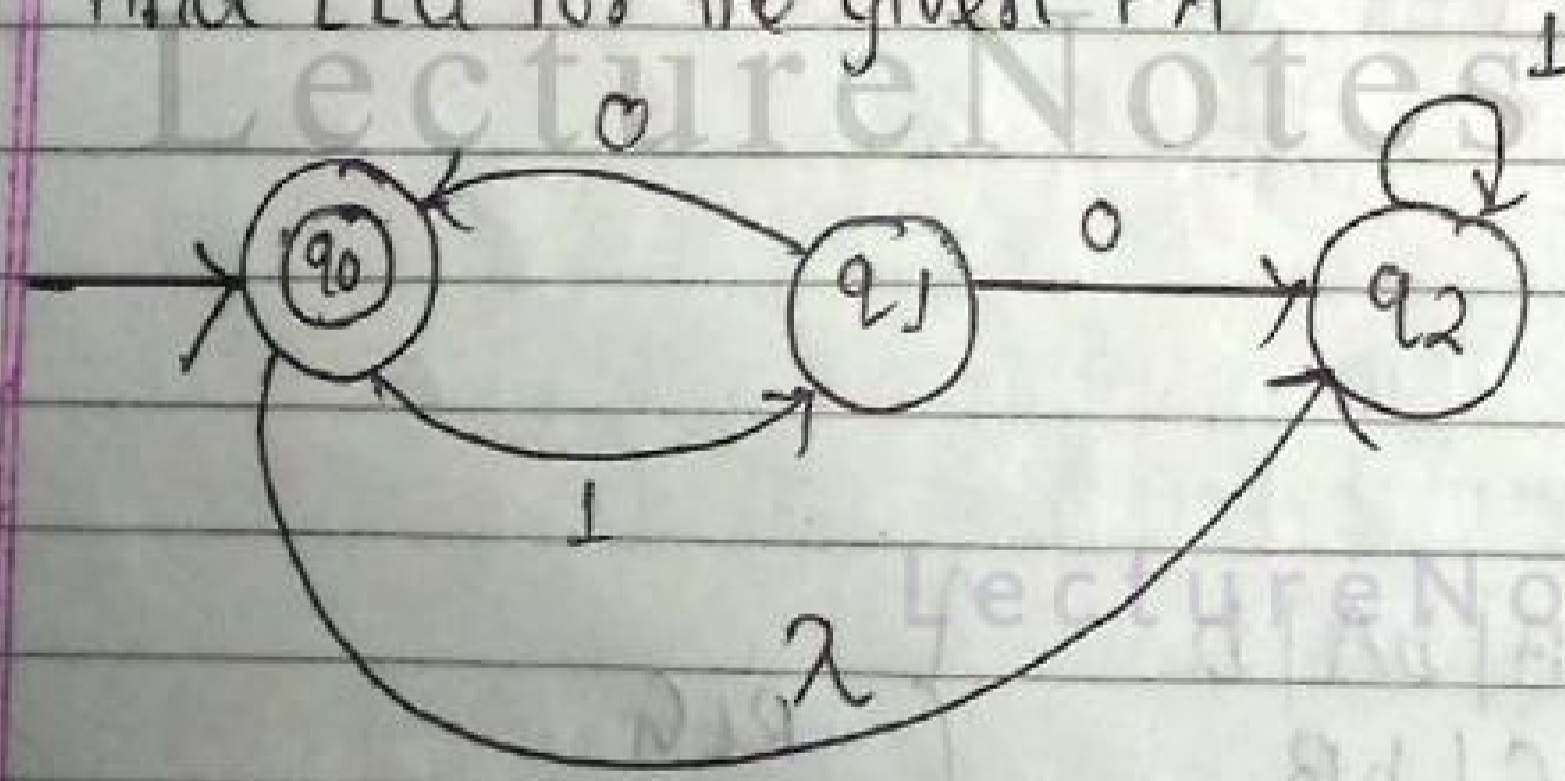 LLG for the given FA
LectureNotes
1
0
q0
q1
0
q2
1
λ
LectureNo